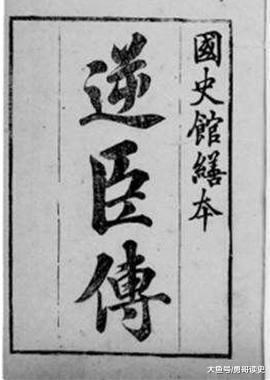 國史館繕本
逆臣傳
大鱼号/勇哥读史